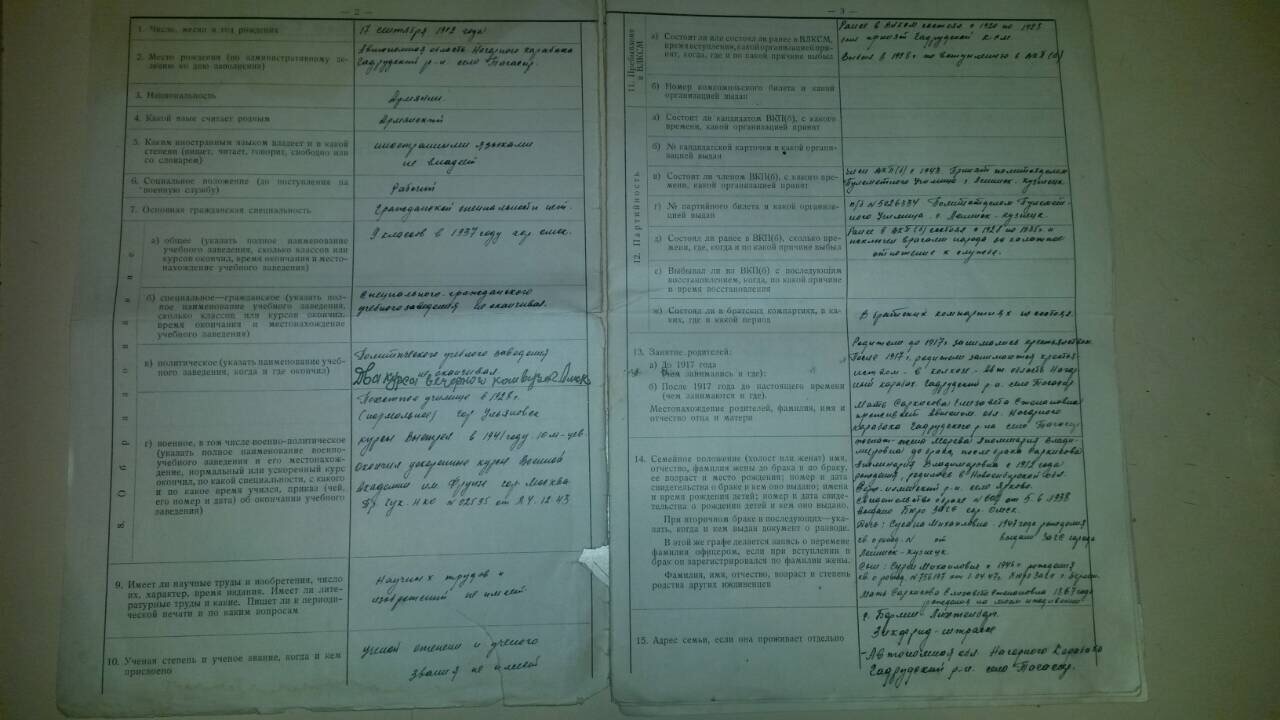 — 2 —
1. Число, месяц и год рождения
17 сентября 1912 года
2. Место рождения (по административному делению ко дню заполнения)
Автономная область Нагорного Карабаха
Гадрудский р-н. село
3. Национальность
Армянин.
4. Какой язык считает родным
Армянский
5. Каким иностранным языком владеет и в какой
степени (пишет, читает, говорит, свободно или
со словарем)
иностранными языками
не владеет
6. Социальное положение (до поступления на
военную службу)
Рабочий
7. Основная гражданская специальность
Гражданской специальности нет.
8. Образование
а) общее (указать полное наименование
учебного заведения, сколько классов или
курсов окончил, время окончания и место-
нахождение учебного заведения)
9 классов в 1937 году гор. Омск.
б) специальное—гражданское (указать пол-
ное наименование учебного заведения,
сколько классов или курсов окончил,
время окончания и местонахождение
учебного заведения)
Специального-гражданского
учебного заведения не оканчивал.
в) политическое (указать наименование учеб-
ного заведения, когда и где окончил)
Политического учебного заведения
не оканчивал
Два курса вечернего
г) военное, в том числе военно-политическое
(указать полное наименование военно-
учебного заведения и его местонахож-
дение, нормальный или ускоренный курс
окончил, по какой специальности, с какого
и по какое время учился, приказ (чей,
его номер и дата) об окончании учебного
заведения)
Пехотное училище в 1928 г.
(нормальное) гор Ульяновск
курсы Выстрел в 1941 году
Окончил курсы Военной
Академии им. Фрунзе гор. Москва
НКО № 02535 от
9. Имеет ли научные труды и изобретения, число
их, характер, время издания. Имеет ли лите-
ратурные труды и какие. Пишет ли в периоди-
ческой печати и по каким вопросам
Научных трудов и
изобретений не имеет.
10. Ученая степень и ученое звание, когда и кем
присвоено
ученой степени и ученого
звания не имеет
— 3 —
11. Пребывание в ВЛКСМ
а) Состоит ли или состоял ли ранее в ВЛКСМ,
время вступления, какой организацией при-
нят, когда, где и по какой причине выбыл
Ранее в ВЛКСМ состоял с 1920 по 1928
был принят Гадрудской
Выбыл в 1928 г. по вступлению в ВКП(б)
б) Номер комсомольского билета и какой
организацией выдан
12. Партийность
а) Состоит ли кандидатом ВКП(б), с какого
времени, какой организацией принят
б) № кандидатской карточки и какой органи-
зацией выдан
в) Состоит ли членом ВКП(б), с какого вре-
мени, какой организацией принят
член ВКП(б) с 1943 Принят политотделом
Пулеметного Училища г. Ленинск-Кузнецк.
г) № партийного билета и какой организа-
цией выдан
п/б № 5026334 Политотделом Пулемёт-
ного Училища г. Ленинск-Кузнецк
д) Состоял ли ранее в ВКП(б), сколько вре-
мени, где, когда и по какой причине выбыл
Ранее в ВКП(б) состоял с 1928 по 1935 г. и
исключен врагами народа за халатное
отношение к службе.
е) Выбывал ли из ВКП(б) с последующим
восстановлением, когда, по какой причине
и время восстановления
ж) Состоял ли в братских компартиях, в ка-
ких, где и какой период
В братских компартиях не состоял.
13. Занятие родителей:
а) До 1917 года
(чем занимались и где):
б) После 1917 года до настоящего времени
(чем занимаются и где).
Местонахождение родителей, фамилия, имя и
отчество отца и матери
Родители до 1917 г. занимались крестьянством
После 1917 г. родители занимаются крестья-
нством - в колхозе - Авт. области Нагор-
ный Карабах. Гадрудский р-н. село
Мать Саркисова Елизавета Степановна
проживает Автоном. обл. Нагорного
Карабаха Гадрудского р-на село
14. Семейное положение (холост или женат) имя,
отчество, фамилия жены до брака и по браку,
ее возраст и место рождения; номер и дата
свидетельства о браке и кем оно выдано; имена
и время рождения детей; номер и дата свиде-
тельства о рождении детей и кем оно выдано.
При вторичном браке и последующих—ука-
зать, когда и кем выдан документ о разводе.
В этой же графе делается запись о перемене
фамилии офицером, если при вступлении в
брак он зарегистрировался по фамилии жены.
Фамилия, имя, отчество, возраст и степень
родства других иждивенцев
женат - жена Влади-
мировна до брака, после брака Саркисова
Владимировна с 1912 года
рождения, родилась в Новосибирской обл.
р-н. село Ярково.
свидетельство о браке № от 5.6.1938
выдано Бюро ЗАГС гор. Омск.
Дочь: Михайловна - 1943 года рождения
св. о рожд. № от выдано ЗАГС города
Ленинск-Кузнецк.
Сын: Сурен Михайлович с 1946 г. рождения
св. о рожд. № 756197 от 1.04.47г. Бюро ЗАГС г. Берлин.
Мать Саркисова Елизавета Степановна 1867 года
рождения на моем иждивении
15. Адрес семьи, если она проживает отдельно
г. Берлин
Зигфрид-штрассе
- Автономная обл. Нагорного Карабаха
Гадрудский р-н. село